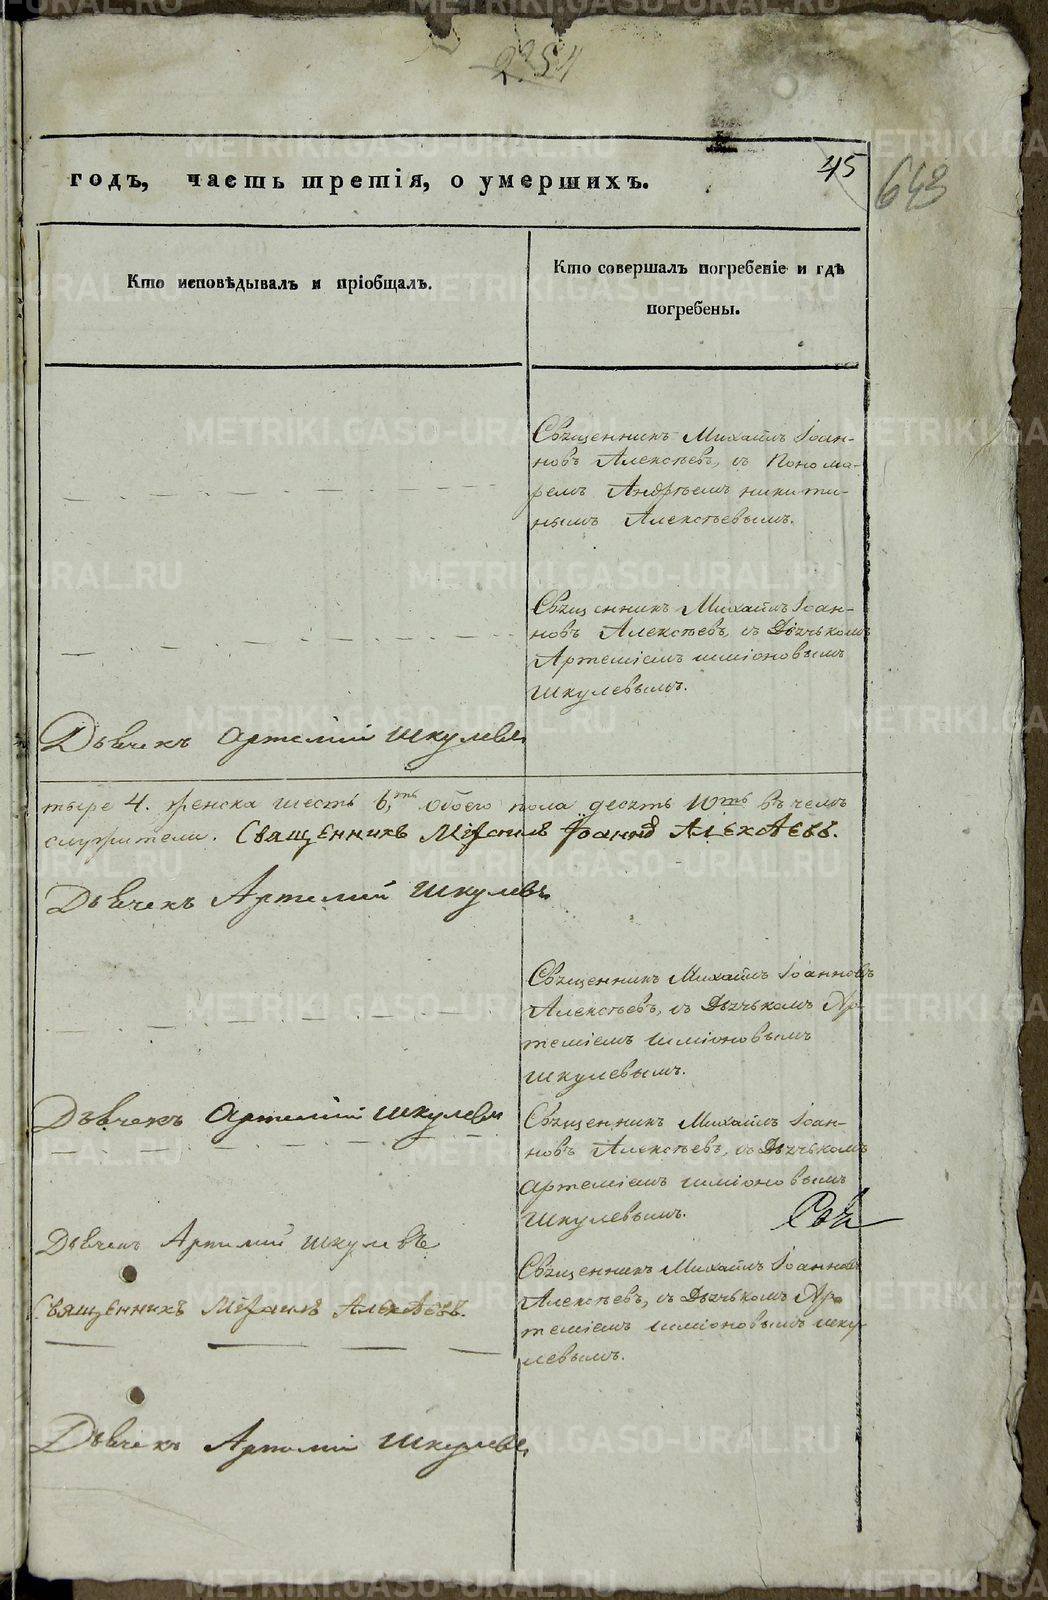 2254
45
643
годъ, часть третія, о умершихъ.
Кто исповѣдывалъ и пріобщалъ.
Кто совершалъ погребеніе и гдѣ
погребены.
Священникъ Михаилъ Іоан-
новъ Алексѣевъ, съ Понома-
ремъ Андрѣемъ никити-
нымъ Алексѣевымъ.
Священникъ Михаилъ Іоан-
новъ Алексѣевъ, съ Дьячькомъ
Артеміемъ симіоновымъ
шкулевымъ.
Дьячекъ Артемій шкулевъ
тыре 4. женска шесть 6,ть обоего пола десять 10ть въ чемъ
служители. Священникъ Міхаилъ Іоаннъ Алексѣевъ.
Дьячекъ Артемій шкулевъ
Священникъ Михаилъ Іоанновъ
Алексѣевъ, съ Дьячькомъ Ар
теміемъ симіоновымъ
шкулевымъ.
Дьячекъ Артемій шкулевъ
Священникъ Михаилъ Іоан-
новъ Алексѣевъ, съ Дьячькомъ
Артеміемъ симіоновымъ
шкулевымъ.
Дьячекъ Артемий шкулевъ
Священникъ Михаилъ Іоанновъ
Алексѣевъ, съ Дьячькомъ Ар
теміемъ симіоновымъ шку-
левымъ.
Священникъ Міхаилъ Алексѣевъ.
Дьячекъ Артемій шкулевъ
METRIKI.GASO-URAL.RU